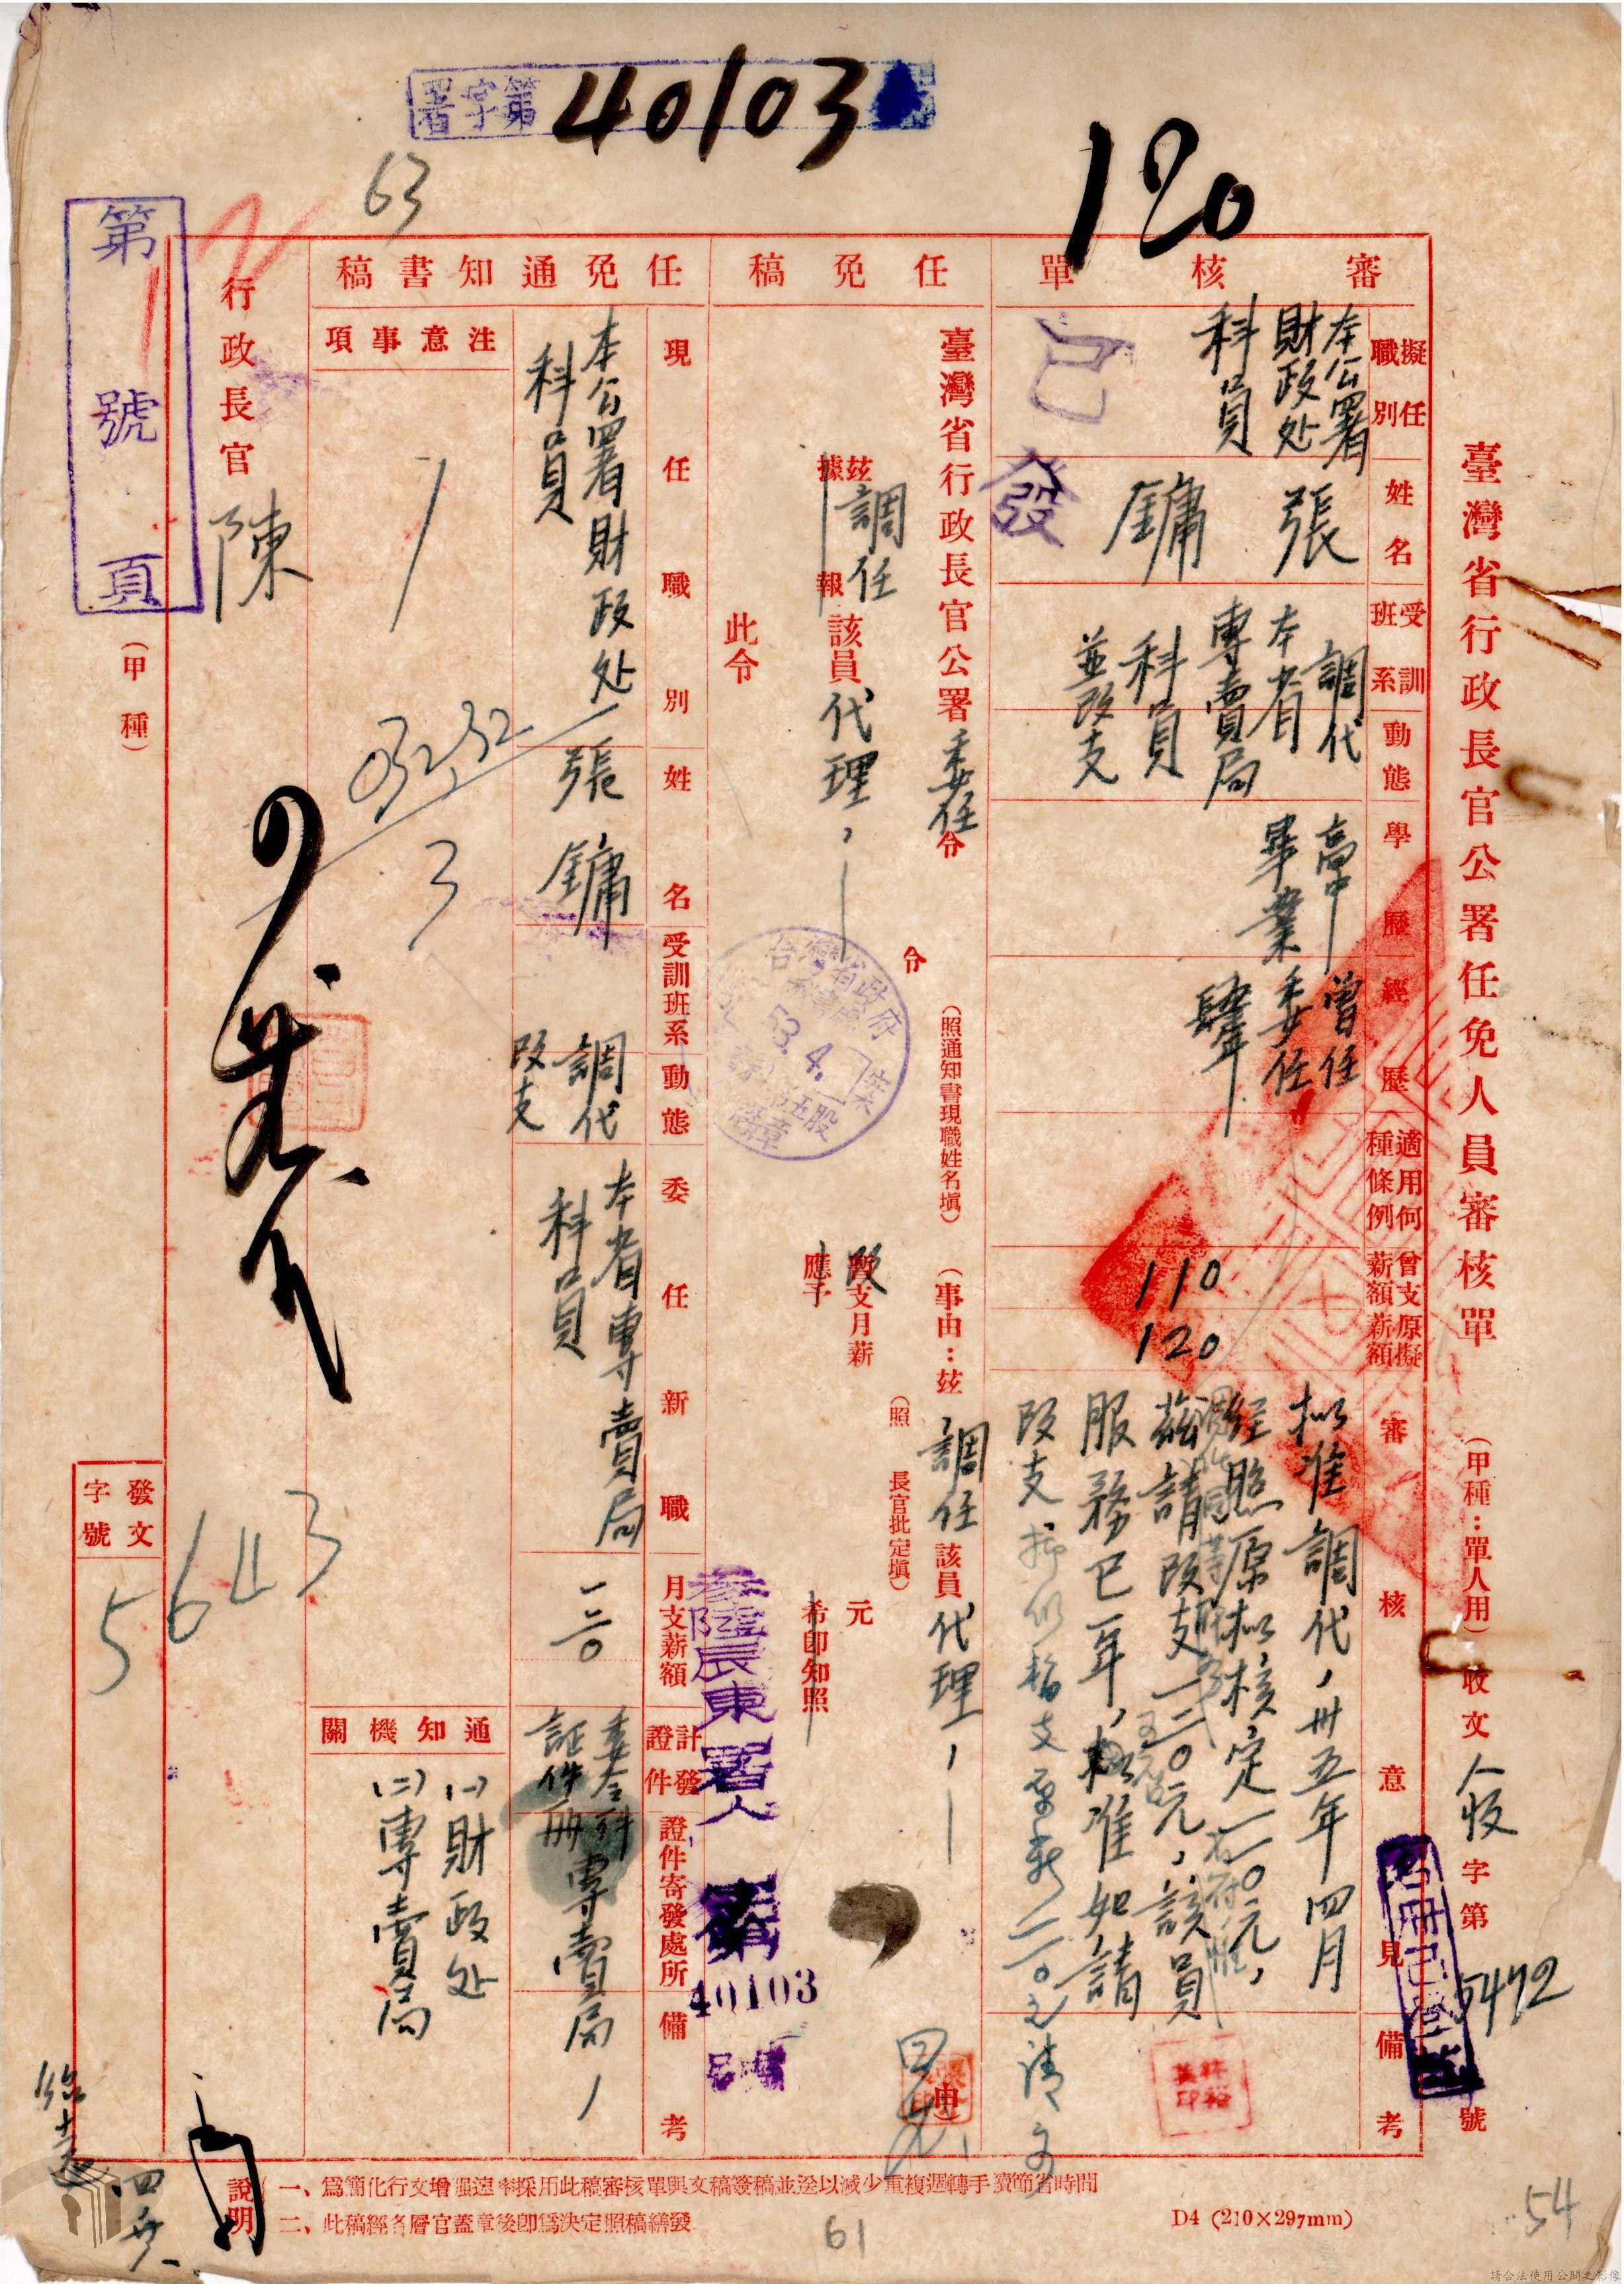 署字第 40103
120
63
臺灣省行政長官公署任免人員審核單 (甲種：單人用) 收文 人收 字第 5472 號
審核單
擬任職別
本公署財政处
科員
姓名
張鏞
受訓班系
動態
調代本省專賣局科員並改支
學歷
高中畢業
經歷
曾任委任肆年
適用何種條例
曾支薪額
110
原擬薪額
120
審核意見
拟准調代，卅五年四月
經照原拟核定一一〇元，
茲請改支一二〇元，該員
服務已一年，拟准如請
改支
備考
林裕
印
已發
任免稿
臺灣省行政長官公署委任令
令
(照通知書現職姓名填)
(事由：茲調任該員代理，
茲調任
據報
該員代理，
改支月薪
應予
(照 長官批定填)
元
希卽知照
此令
台灣省政府
53.4.
任免通知書稿
現任職別
本公署財政处科員
姓名
張鏞
受訓班系
動態
調代
改支
委任新職
本省專賣局
科員
月支薪額
一二〇
計發證件
委令一件
証件一冊
證件寄發處所
專賣局
備考
參陸辰東署人
第
40103
號
注意事項
03232
3
通知機關
(一)財政处
(二)專賣局
行政長官 陳
第 號 頁
(甲種)
發文字號
5643
說明
一、爲簡化行文增强速率採用此稿審核單與文稿簽稿並送以減少重複週轉手續節省時間
二、此稿經各層官蓋章後卽爲決定照稿繕發
D4 (210×297mm)
61
54
請合法使用公開之影像